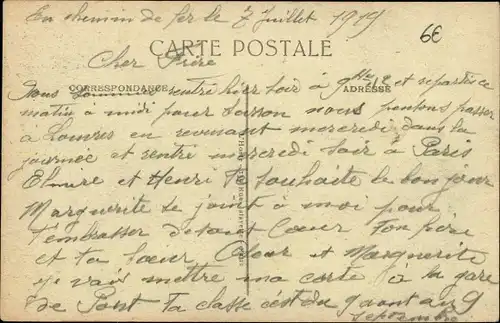 En chemin de fer le 7 Juillet 1919
6€
CARTE POSTALE
Cher Frère
CORRESPONDANCE
ADRESSE
Nous sommes rentré hier soir à 9 et repartis ce
matin à midi pour nous pensons passer
à Louvres en revenant mercredi dans la
journée et rentré mercredi soir à Paris
Elmire et Henri te souhaite le bonjour
Marguerite se joint à moi pour
t'embrasser de tout Cœur Ton frère
et ta sœur Oscar et Marguerite
je vais mettre ma carte à la gare
de Pont Ta classe c'est du 9 août au 9
septembre